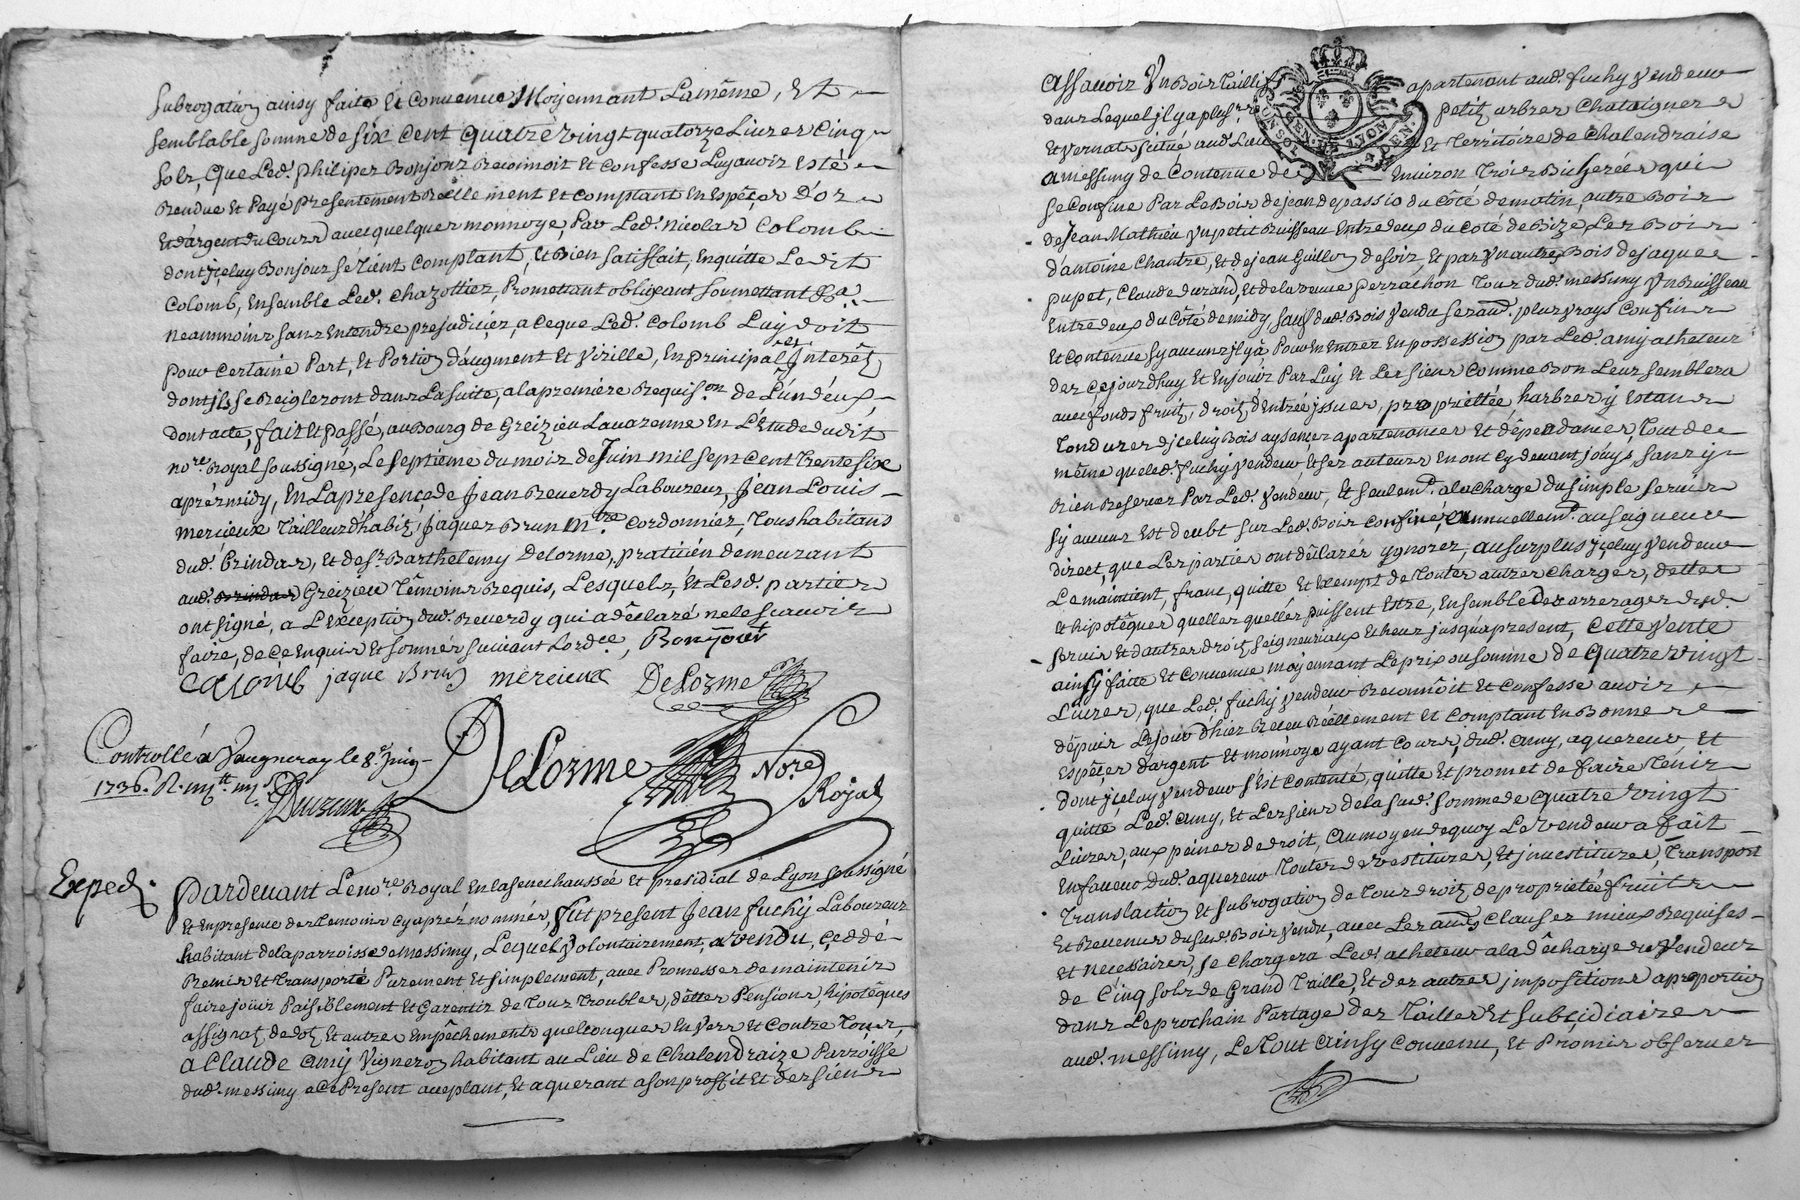 subrogation ainsy faite et Convenue Moyennant La même, Et
semblable somme de six Cent quatre vingt quatorze Livres Cinq
sols, que Led. philipes Bonjour Reconnoit Et Confesse Luy avoir Esté
Rendue et Payé presentement Reellement et Comptant En Espéces D'or
Et d'argent du Cours avec quelques monnoye, Par Led. Nicolas Colomb
dont jceluy Bonjour se Tient Comptant, et Bien satisfait, En quitte Ledit
Colomb, Ensemble Led. Chazottier, Promettant obligeant soumettant &a.
neanmoins sans Entendre prejudicier, a Ceque Led. Colomb Luy doit
pour Certaine Part, et Portion d'augment et Virille, En principal et Interêtz
dont jls se Reigleront dans La suitte, a La premiére Requis.on de L'un d'eux,
dont acte, fait et Passé, au Bourg de Greizieu Lavarenne En L'Etude dudit
no.re Royal soussigné, Le septiéme du mois de Juin mil sept Cent Trente six
aprés midy, En La presençe de Jean Reverdy Laboureur, Jean Louis
mercieux Tailleur D'habitz, Jaques Brun M.tre Cordonnier, Tous habitans
dud. Brindas, et de s.r Barthelemy Delorme, praticién demeurant
aud. Brindas Greizieu Témoins Requis, Lesquelz, et Lesd. parties
ont signé, a L'Exception dud. Reverdy qui a dêclaré ne le scavoir
faire, de Ce Enquis Et sommés suivant Lord.ce, Bonjour
Colomb jaque Brun mercieux DeLorme
Controllé a Vaugneray le 8.e Juin
1736. R.
DeLorme No.re
Royal
Exped.
Pardevant Le no.re Royal En La senechaussée et presidial de Lyon soussigné
Et En presence des Temoins Cy aprés nommés, fut present Jean fuchy Laboureur
habitant de La parroisse de Messimy, Lequel Volontairement, a vendu, Ceddé
Remis et Transporté Purement Et simplement, avec Promesses de maintenir
faire joüir Paisiblement Et Garentir de Tous Troubles, dêttes Pensions, hipotêques
assignatz de dotz, Et autres Empêchements quelconques Envers et Contre Tous,
a Claude Amy Vigneron habitant au Lieu de Chalendraize Parroisse
dud. messimy a Ce Present acceplant, et aquerant a son proffit Et des siens
Assavoir Un Bois Tailli apartenant aud. fuchy Vendeur
dans Lequel jl y a plus.rs petitz arbres Chataigners
et Vernats situé aud. Lieu Et Territoire de Chalendraise
a messimy de Contenue de Environ Trois Bicherées qui
se Confine Par Le Bois de jean depassio du Côté de matin, autre Bois
de Jean Mathieu Un petit Ruisseau Entre deux du Coté de Bize, Les Bois
d'antoine Chantre, et de jean Guillon de soir, et par Un autre Bois de jaques
pupet, Claude durand, et de La veuve perrachon Tous dud. messimy Un Ruisseau
Entre deux du Côte de midy, sauf dud. Bois Vendu ses aud. plus vrays Confins
Et Contenue sy aucuns jl y â Pour En Entrer En possession par Led. amy acheteur
des Cejourdhuy Et En jouir Par Luy Et Les siens Comme Bon Leur semblera
avec fonds fruitz, droitz d'Entrée jssues, propriettée, harbres y Estans
Tondures d'jceluy Bois aysances apartenances Et dépendances, Tout de
même que led. fuchy Vendeur Et ses auteurs En ont Cy devant jôuys, sans y
Rien Reserver Par Led. Vendeur, Et seulem.t a La Charge du simple servis
sy aucun Est deubt sur Led. Bois Confiné, annuellem.t au seigneur
direct, que Les parties ont dêclarés ygnorer, au surplus jceluy Vendeur
Le maintient, franc, quitte Et Exempt de Toutes autres Charges, dettes
Et hipotêques quelles quelles puissent Etre, Ensemble des arrerages dud.
servis Et d'autres droitz seigneuriaux Echeus jusqu'a present, Cette Vente
ainsy faite Et Convenue moyennant Le prix ou somme de quatre vingt
Livres, que Led. fuchy Vendeur Reconnôit Et Confesse avoir
dépuis Le jour d'hier Reçeu Réellement Et Comptant En Bonne
Espéçes d'argent Et monnoye ayant Cours, dud. amy, aquereur, Et
dont jceluy Vendeur s'Est Contenté, quitte Et promet de faire Tenir
quitte Led. amy, Et Les siens de La sud. somme de quatre vingt
Livres, aux peines de droit, au moyen dequoy Le Vendeur a fait
En faveur dud. aquereur Toutes de vestitures, Et jnvestitures, Transport
Translaction Et subrogation de Tous droitz de proprietée fruits
Et Revenus du sud. Bois Vendu, avec Les aud. Clauses mieux Requises
et Necessaires, se Chargera Led. acheteur a La dêcharge du Vendeur
de Cinq sols de Grand Taille, Et des autres jmpositions a proportion
dans Le prochain Partage des Tailles Et subsidiaires
aud. messimy, Le Tout ainsy Convenu, et Promis observer